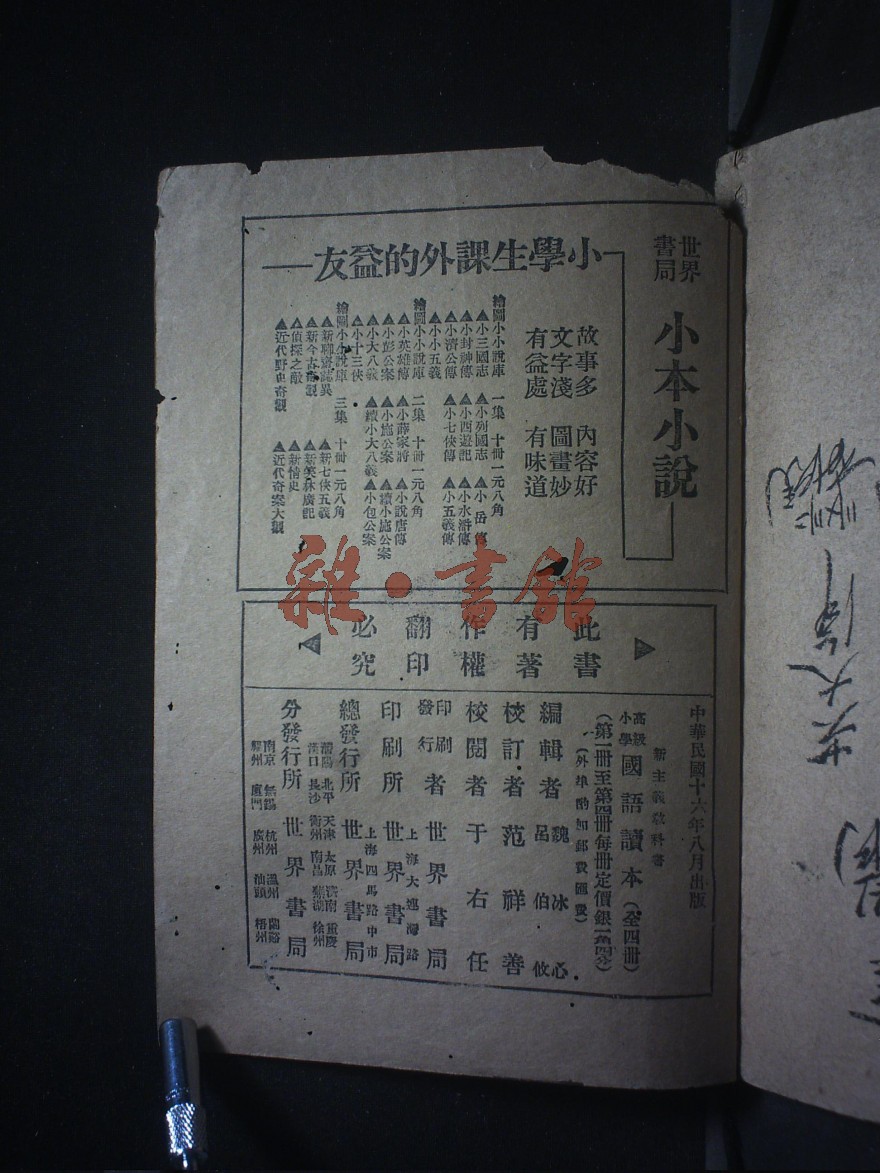 世界書局
小本小說
小學生課外的益友
故事多 內容好
文字淺 圖畫妙
有益處 有味道
繪圖小小說庫 一集 十冊一元八角
▲小三國志 ▲小列國志 ▲小岳傳
▲小封神傳 ▲小西遊記 ▲小水滸傳
▲小濟公傳 ▲小七俠傳 ▲小五義傳
▲小小五義
繪圖小小說庫 二集 十冊一元八角
▲小英雄傳 ▲小薛家將 ▲小說唐傳
▲小彭公案 ▲小施公案 ▲續小施公案
▲小大八義 ▲續小大八義 ▲小包公案
▲小十三俠
繪圖小小說庫 三集 十冊一元八角
▲新聊齋誌異 ▲新七俠五義
▲新今古奇觀 ▲新笑林廣記
▲偵探之敵 ▲新情史
▲近代野史奇觀 ▲近代奇案大觀
此書有著作權翻印必究
中華民國十六年八月出版
新主義教科書
高級小學 國語讀本(全四冊)
(第一冊至第四冊每冊定價銀一角四分)
(外埠酌加郵費匯費)
編輯者 魏冰心 呂伯攸
校訂者 范祥善
校閱者 于右任
印刷發行者 世界書局
上海大連灣路
印刷所 世界書局
上海四馬路中市
總發行所 世界書局
瀋陽 北平 天津 太原 濟南 重慶
漢口 長沙 衡州 南昌 蕪湖 徐州
分發行所 世界書局
南京 無錫 杭州 溫州 蘭谿
福州 廈門 廣州 汕頭 梧州
雜·書館